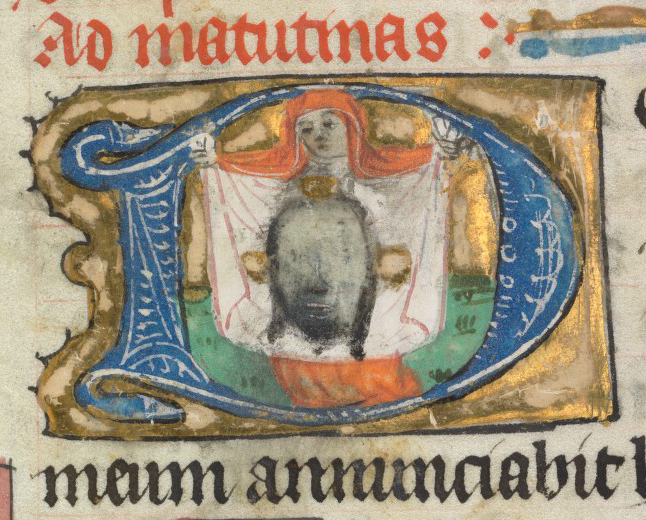 Ad matutinas :
D
meum annunciabit